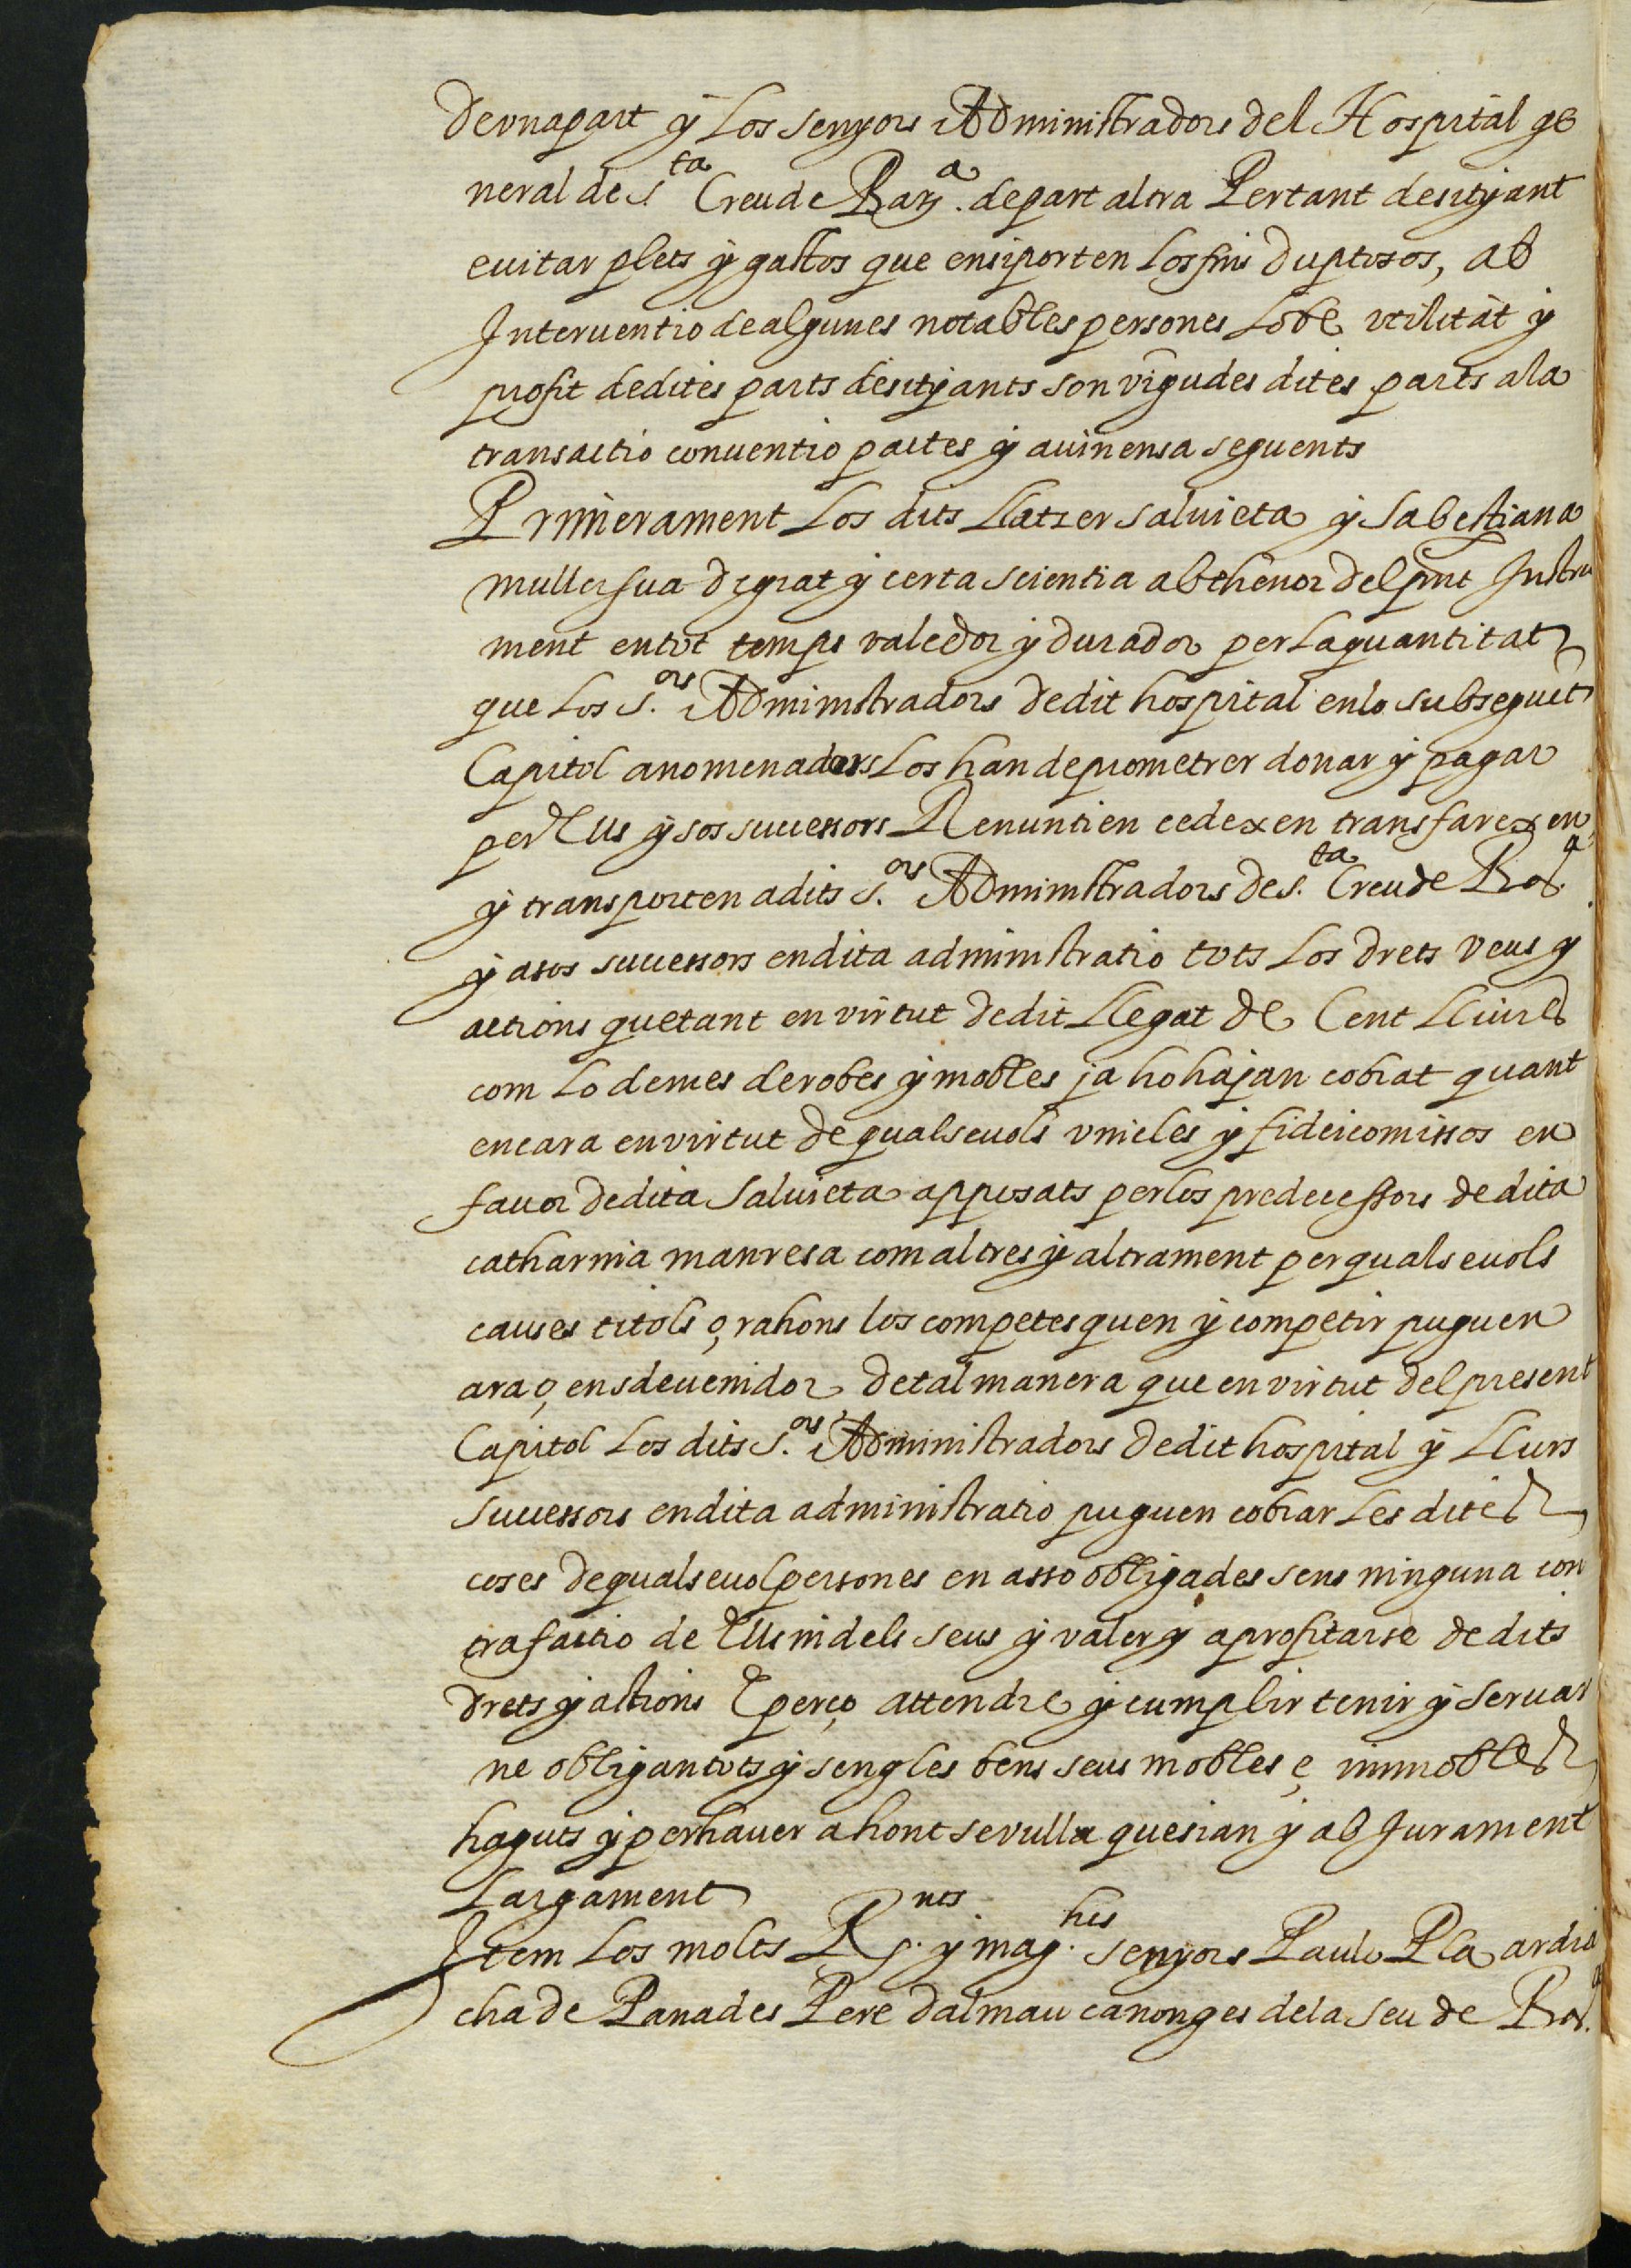 de vna part y los senyors Administradors del Hospital ge
neral de S.ta Creu de Bar.a de part altra Pertant desitjant
euitar plets y gastos que ensiporten los fins duptosos, ab
Interuentio de algunes notables persones lo be vtilitat y
profit de dites parts desitjants son vingudes dites parts a la
transactio conuentio pactes y auinensa seguents
Primerament los dits Llatzer saluieta y Sabestiana
muller sua de grat y certa scientia ab thenor del pnt Instru
ment en tot temps valedor y durador per la quantitat
que los S.ors Administradors de dit hospital en lo subseguet
Capitol anomenadors los han de prometrer donar y pagar
per Ells y sos successors Renuntien cedexen transfarexen
y transporten a dits S.ors Administradors de S.ta Creu de Bar.a
y a sos successors en dita administratio tots los drets veus y
actions que tant en virtut de dit Llegat de Cent Lliures
com lo demes de robes y mobles ja ho hajan cobrat quant
encara en virtut de qualseuols vincles y fideicomissos en
fauor de dita Saluieta apposats per los predecessors de dita
catharina manresa com altres y altrament per qualseuols
causes titols o, rahons los competesquen y competir puguen
ara o, en sdeuenidor de tal manera que en virtut del present
Capitol los dits S.ors Administradors de dit hospital y Llurs
successors en dita administratio puguen cobrar les dites
coses de qualseuol persones en asso obligades sens ninguna con
trafactio de Ells ni dels seus y valer y aprofitarse de dits
drets y actions E perço attendre y cumplir tenir y seruar
ne obligan tots y sengles bens seus mobles e, immobles
haguts y per hauer a hont se vulla que sian y ab Jurament
Largament
Item los molts R.nts y mag.chs senyors Paulo Pla ardia
cha de Panades Pere dalmau canonges de la Seu de Bar.a